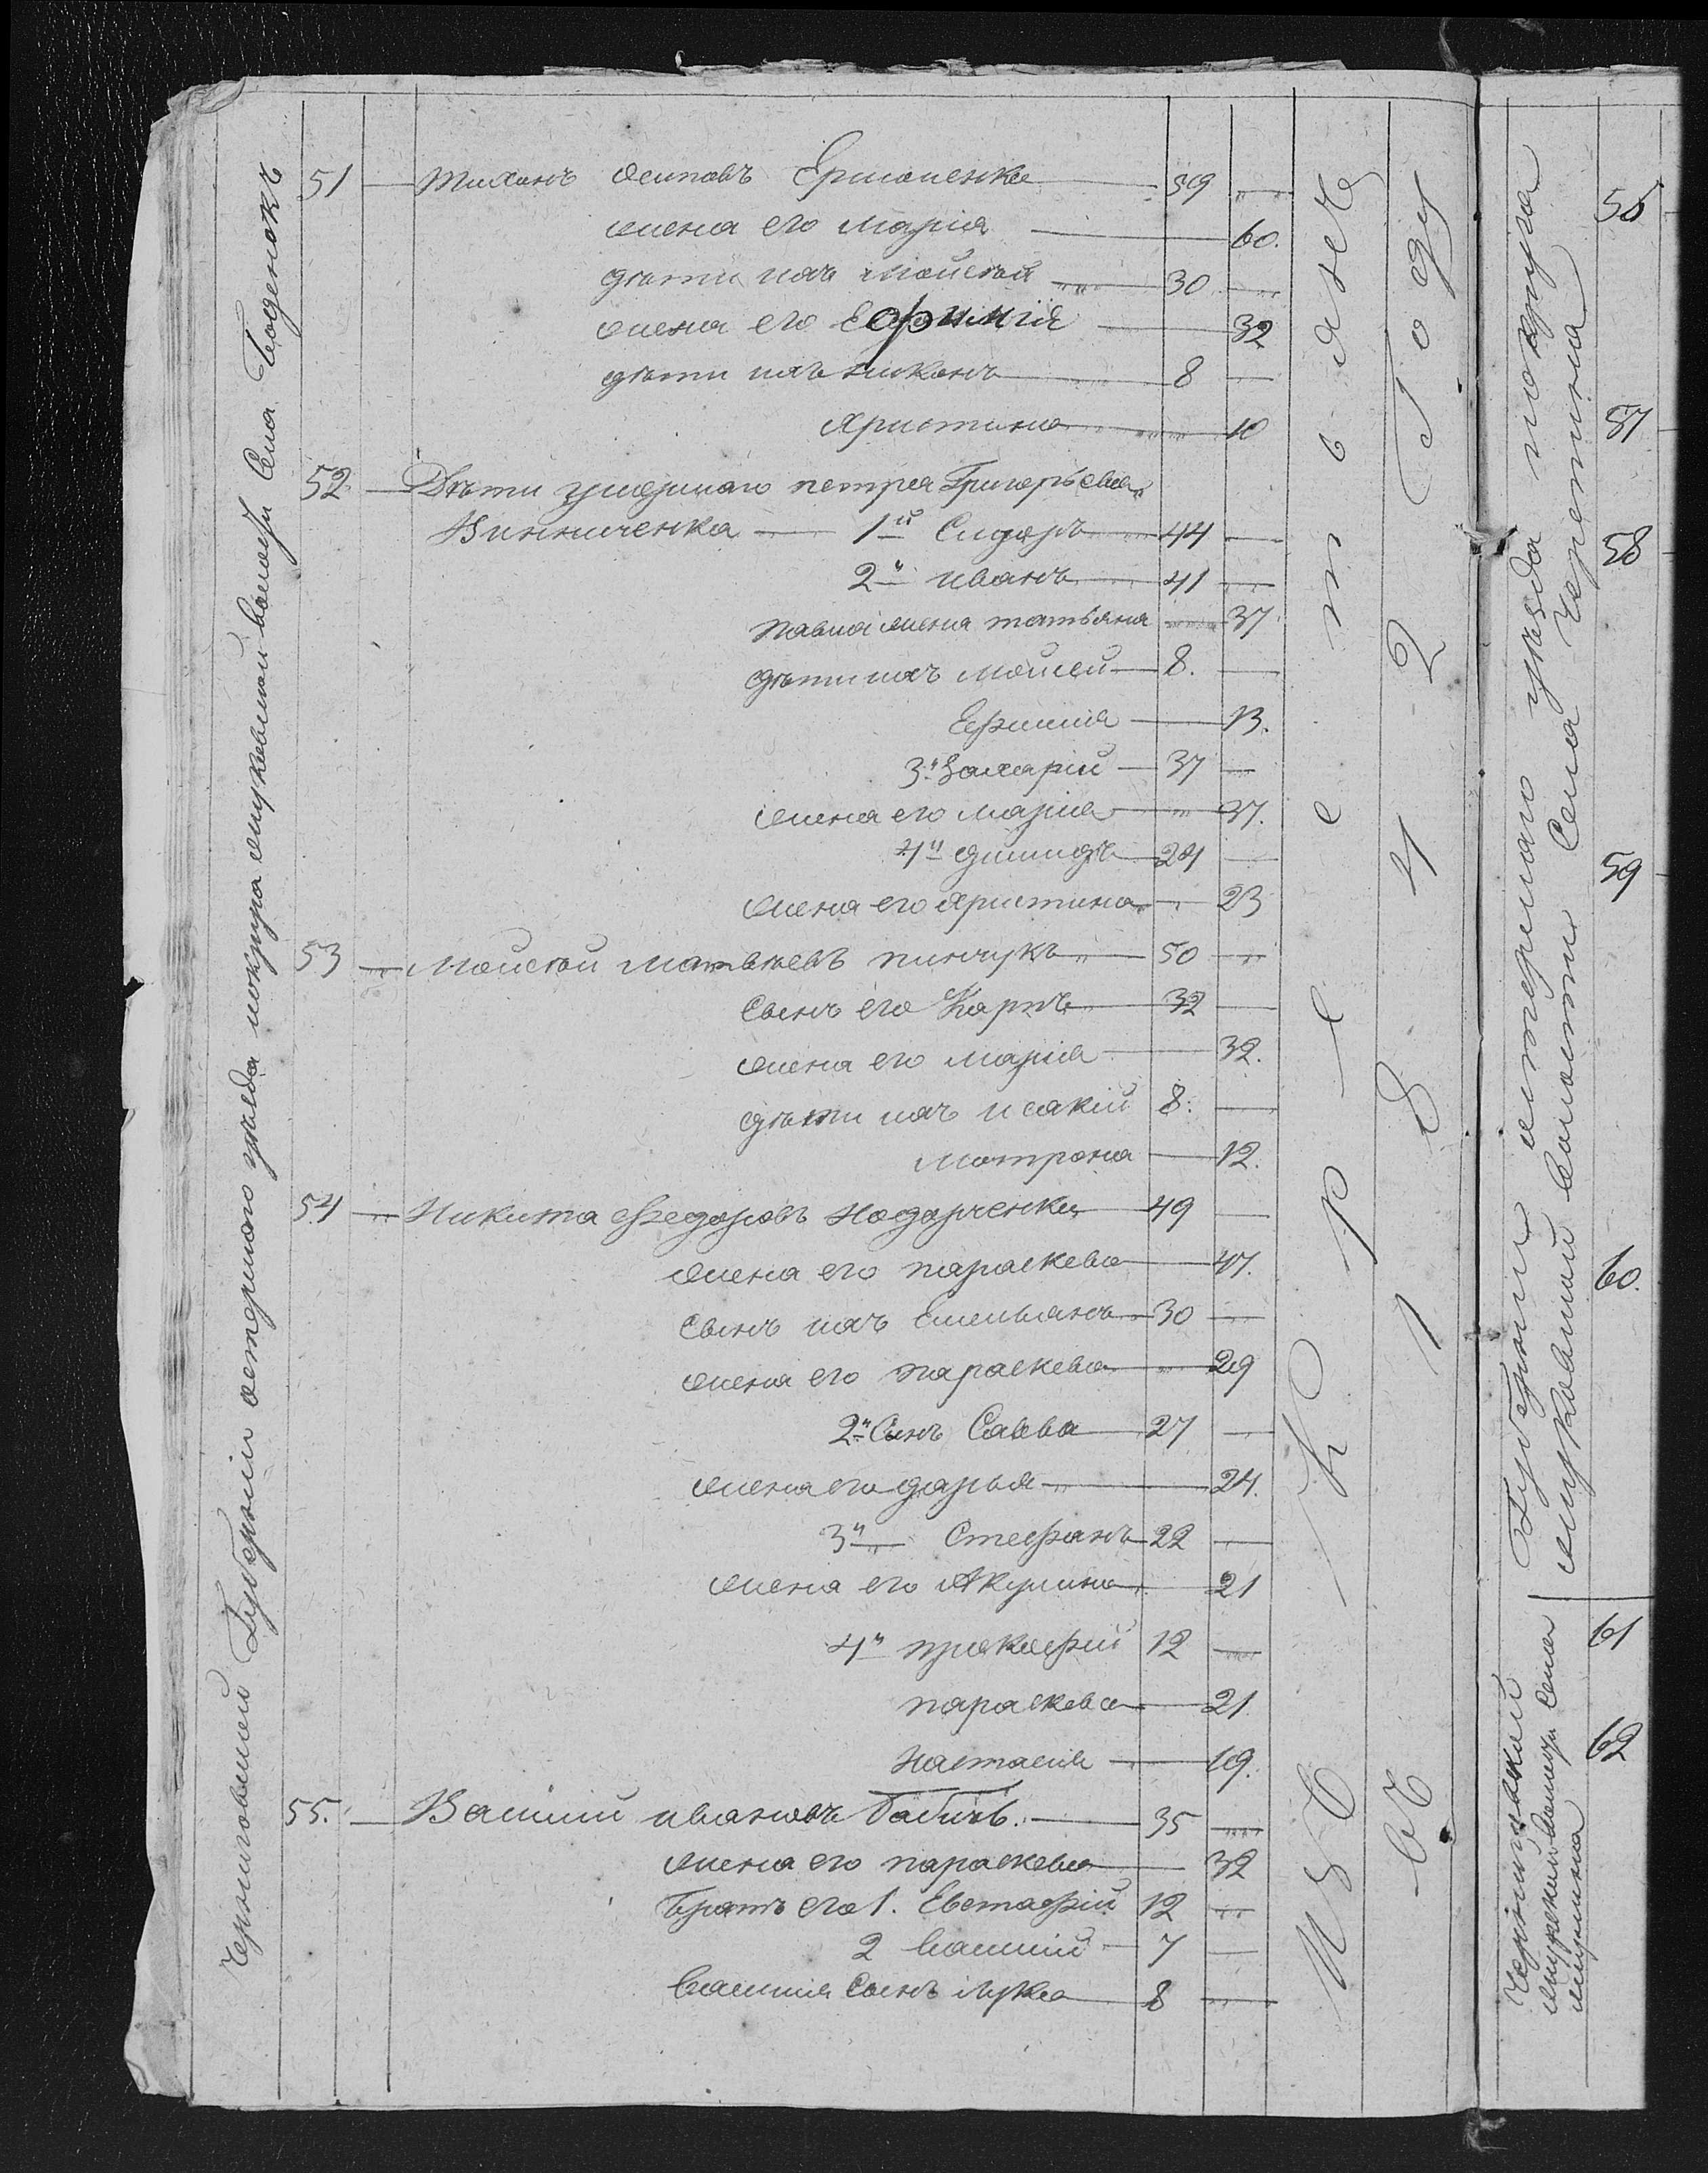 Черниговской Губерніи остерского уѣзда мокраго жуковской волости Села Боденокъ
51 Тихонъ осиповъ Ермоленко 59
жена его марія 60.
дѣти ихъ Моисѣй 30
жена его Ефимія 32
дѣти ихъ никонъ 8
Христина 10
52. Дѣти умершаго петра Григорьева
Винниченка 1й Сидоръ 44
2й иванъ 41
ивана жена татьяна 37
дѣти ихъ моисей 8.
Ефимія 13.
3й Захарій 37
жена его марія 37.
4й димидъ 24
жена его христина 23
53 Моисѣй Матвѣевъ пинчукъ 50
Сынъ его Карпъ 32
жена его марія 32.
дѣти ихъ исакій 8.
мотрона 12.
54 Никита Федоровъ Нодорченко 49
жена его параскева 47.
Сынъ ихъ Емельянъ 30
жена его параскева 29
2й Сынъ Савва 27
жена его дарья 24.
3й Стефанъ 22
жена его Акулина 21
4й прокофій 12
параскева 21.
настасія 19.
55. Василий ивановъ Бабичъ. 35
жена его параскева 32
братъ его 1. Евстафій 12
2 василій 7
василия Сынъ лука 8
въ 1824 Году
Губерніи остерского уѣзда
жуковской волости Села
56
57
58
59
60.
61
62